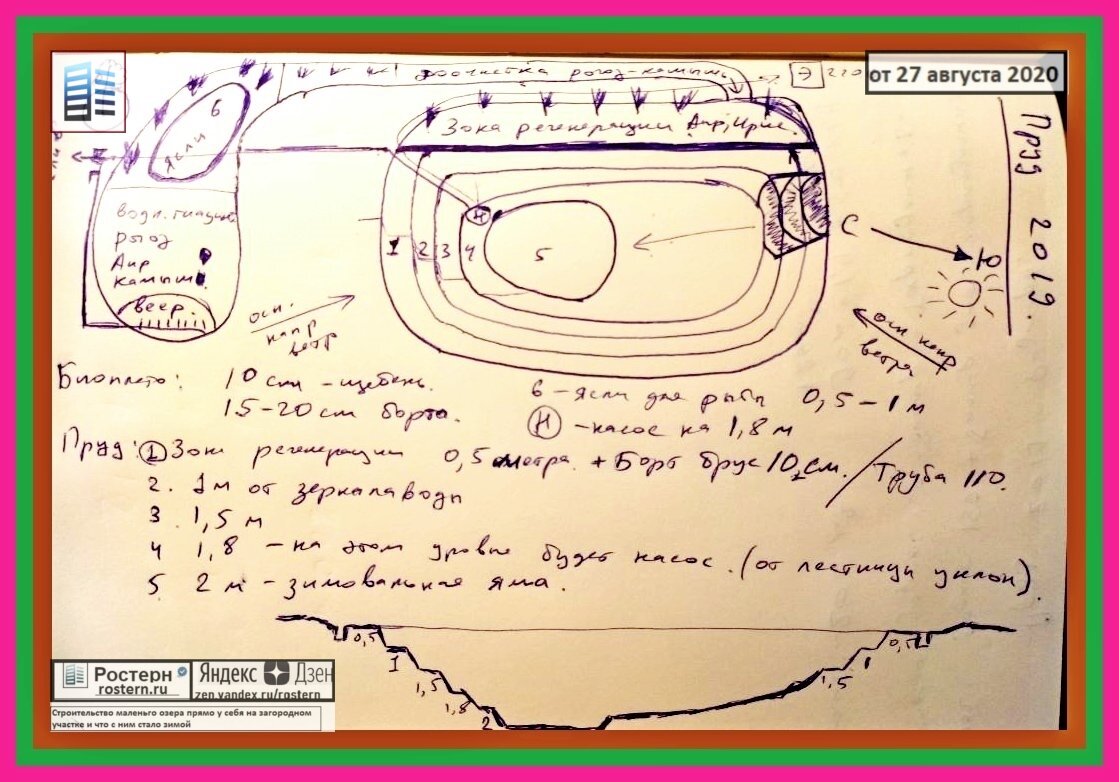 от 27 августа 2020
доочистка рогоз-камыш
Э 220
Зона регенерации Аир, Ирис.
Пруд 2019.
6
ясли
водн. гиацинт
рогоз
Аир
камыш
веер.
Н
1 2 3 4 5
С
Ю
осн. напр ветр
осн напр ветра
Биоплато: 10 см - щебень.
15-20 см борта.
6 - ясли для рыбы 0,5 - 1 м
Н - насос на 1,8 м
Пруд: 1 Зона регенерации 0,5 метра. + Борт брус 10 см. / Труба 110.
2. 1 м от зеркала воды
3. 1,5 м
4 1,8 - на этом уровне будет насос. (от лестницы уклон).
5. 2 м - зимовальная яма.
0,5
1
1,5
1,8
2
0,5
1
1,5
Ростерн
rostern.ru
Яндекс Дзен
zen.yandex.ru/rostern
Строительство маленьго озера прямо у себя на загородном
участке и что с ним стало зимой